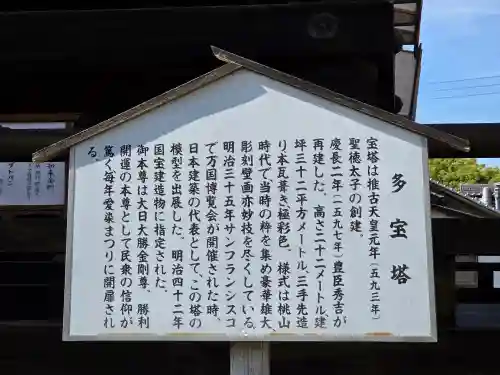 多宝塔
宝塔は推古天皇元年(五九三年)
聖徳太子の創建。
慶長二年(一五九七年)豊臣秀吉が
再建した。高さ二十二メートル、建
坪三十二平方メートル、三手先造
り本瓦葺き極彩色、様式は桃山
時代で当時の粋を集め豪華雄大
彫刻壁画亦妙技を尽くしている。
明治三十五年サンフランシスコ
で万国博覧会が開催された時、
日本建築の代表として、この塔の
模型を出展した。明治四十二年
国宝建造物に指定された。
御本尊は大日大勝金剛尊、勝利
開運の本尊として民衆の信仰が
篤く毎年愛染まつりに開扉され
る。